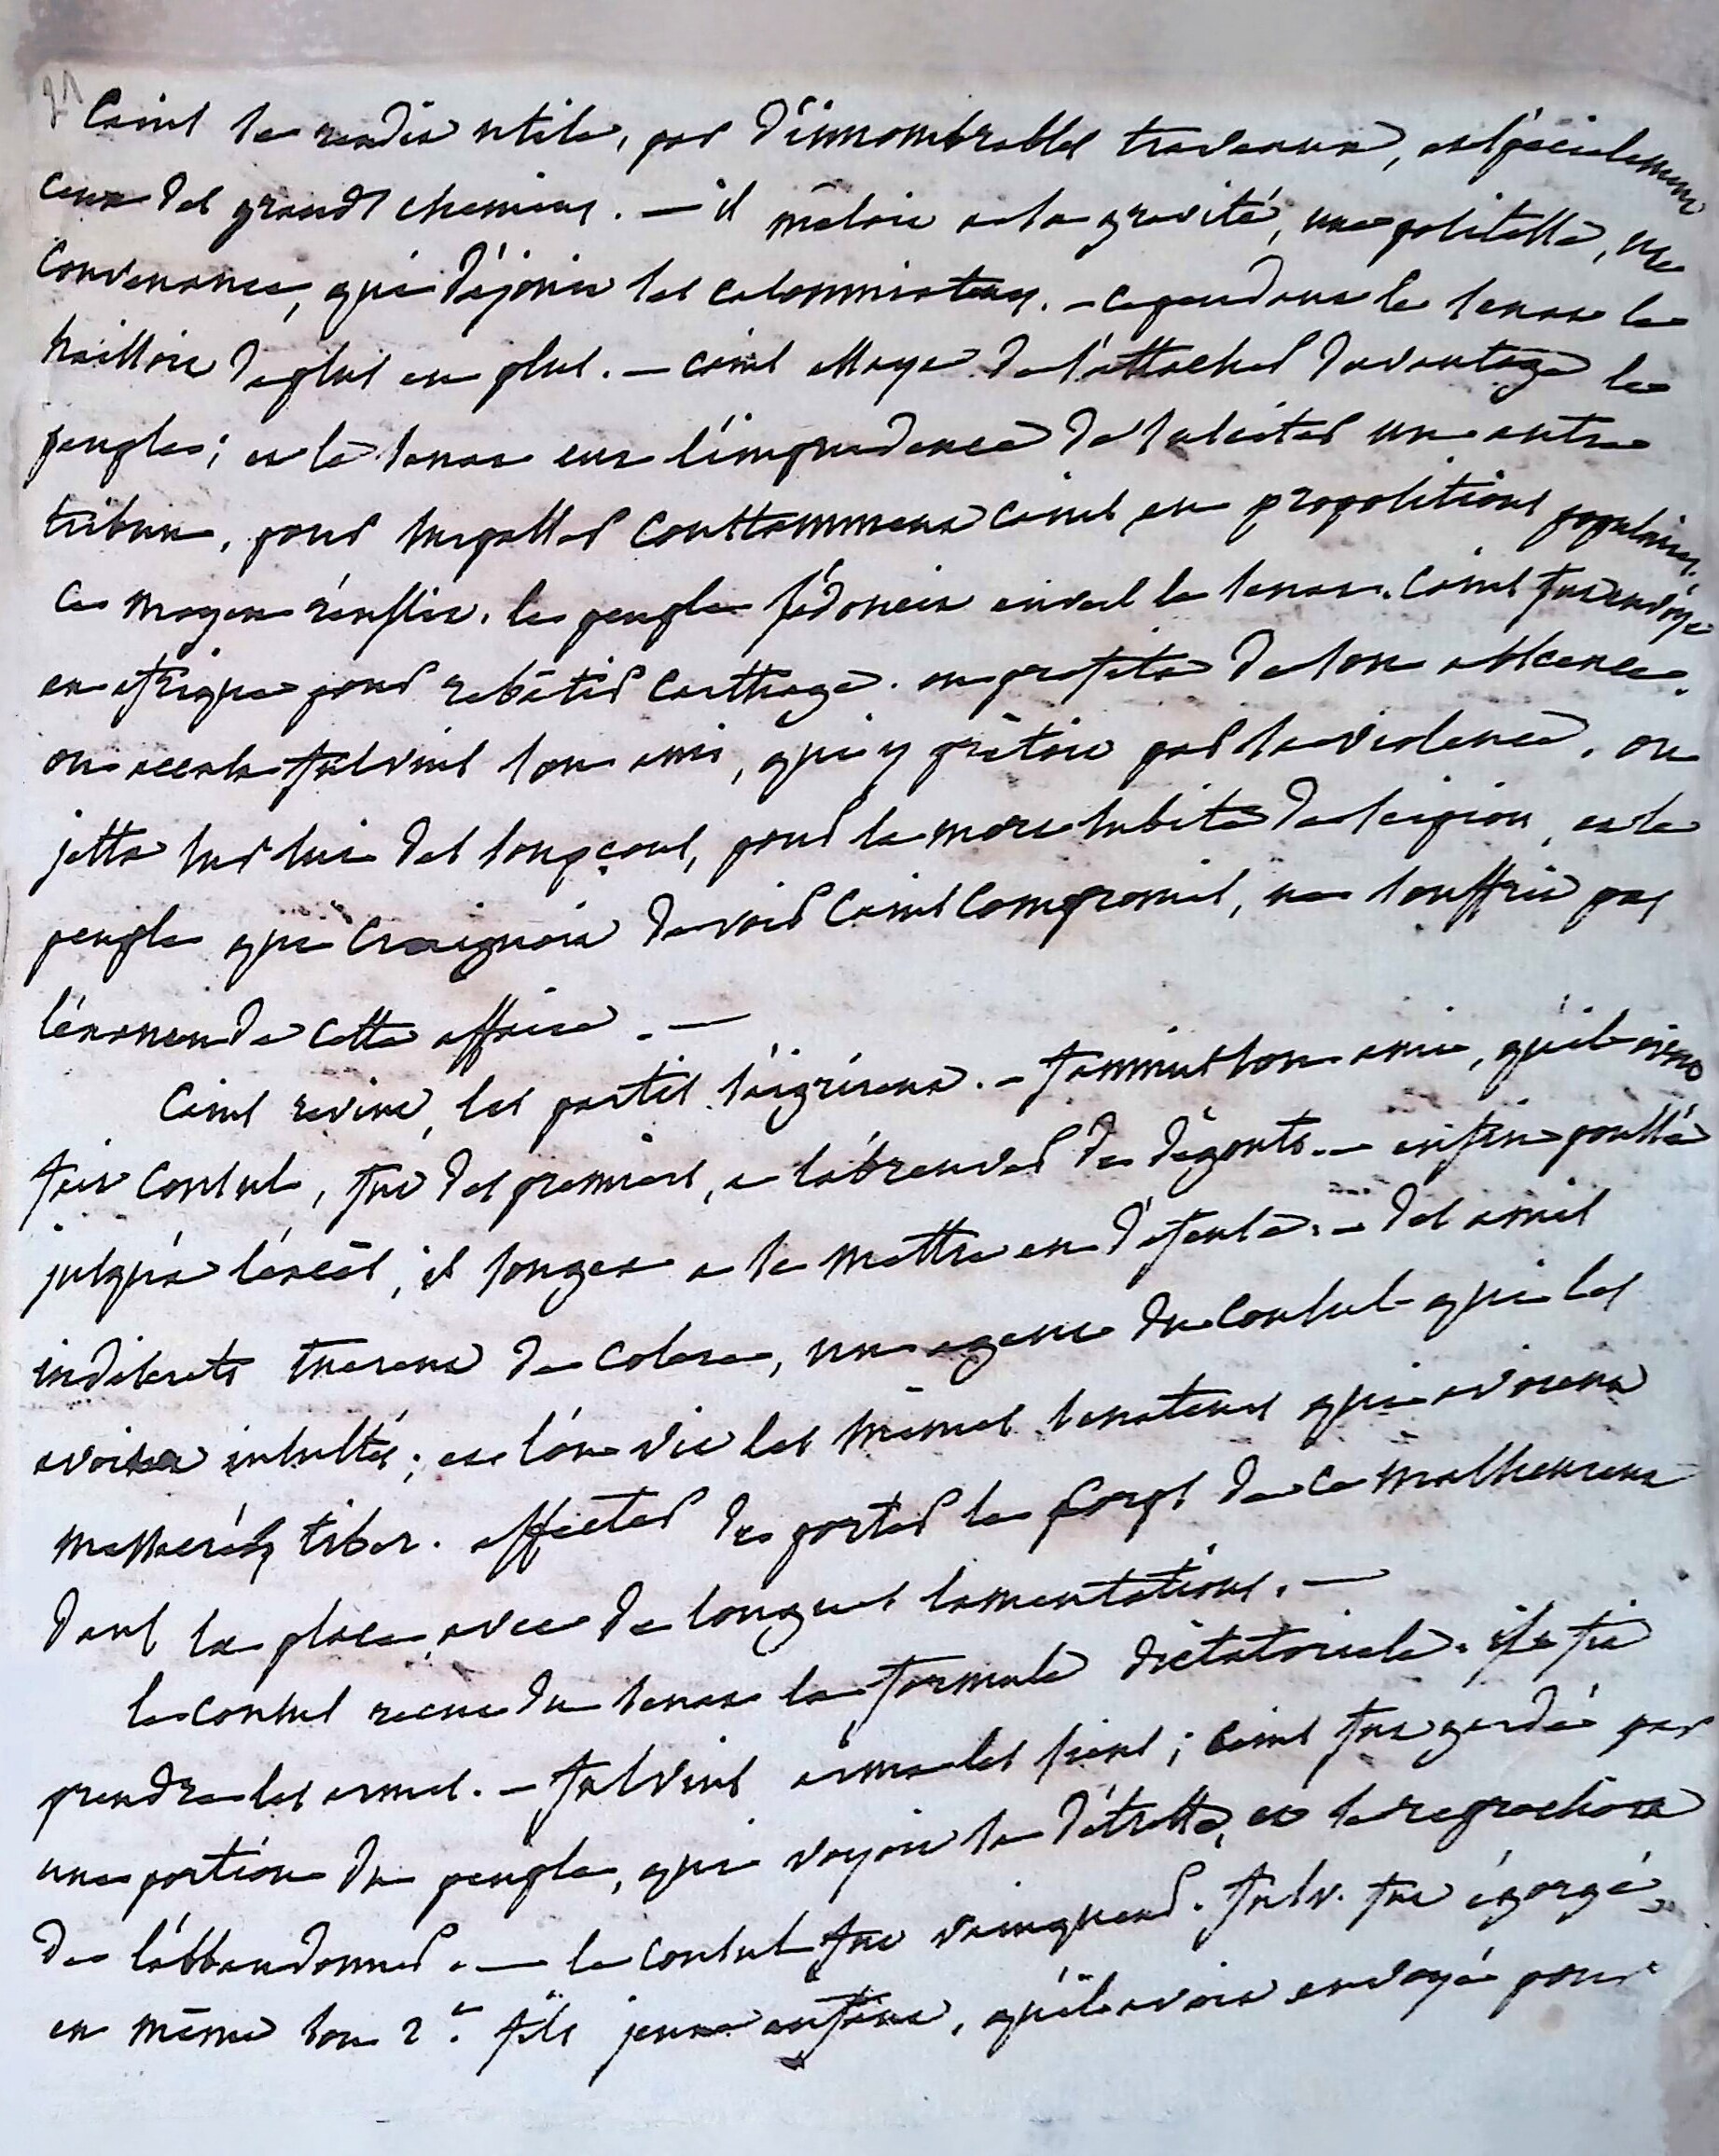 Caius se rendit utile, par d'innombrables travaux, et spécialement
ceux des grands chemins. — il mêloit a la gravité, une politesse, une
convenance, qui déjouoit les calomniateurs. — cependant le senat le
haissoit de plus en plus. — caius essaya de s'attacher davantage le
peuple; et le senat eut l'imprudence de susciter un autre
tribun, pour surpasser constamment caius en propositions populaires.
ce moyen réussit. le peuple s'adoucit envers le senat. caius fut envoyé
en afrique pour rebâtir carthage. on profita de son absence.
on accusa fulvius son ami, qui y prêtoit par sa violence. on
jetta sur lui des soupçons, pour la mort subite de scipion, et le
peuple qui craignoit de voir caius compromis, ne souffrit pas
l'examen de cette affaire. —
Caius revint, les partis s'aigrirent. — fannius son ami, qu'il avoit
fait consul, fut des premiers, a l'abreuver de dégouts. — enfin poussé
jusqu'a l'excès, il songea a se mettre en défense. — des amis
indiscrets tuerent de colere, un agent du consul qui les
avoit insultés; et l'on vit les mêmes senateurs qui avoient
massacré tiber. affecter de porter le corps de ce malheureux
dans la place, avec de longues lamentations. —
le consul recut du senat la formule dictatoriale. il fit
prendre les armes. — fulvius arma les siens; caius fut gardé par
une portion du peuple, qui voyoit sa détresse, et se reprochoit
de l'abbandonner. — le consul fut vainqueur. fulv. fut égorgé,
en même son 2.e fils jeune enfant, qu'il avoit envoyé pour